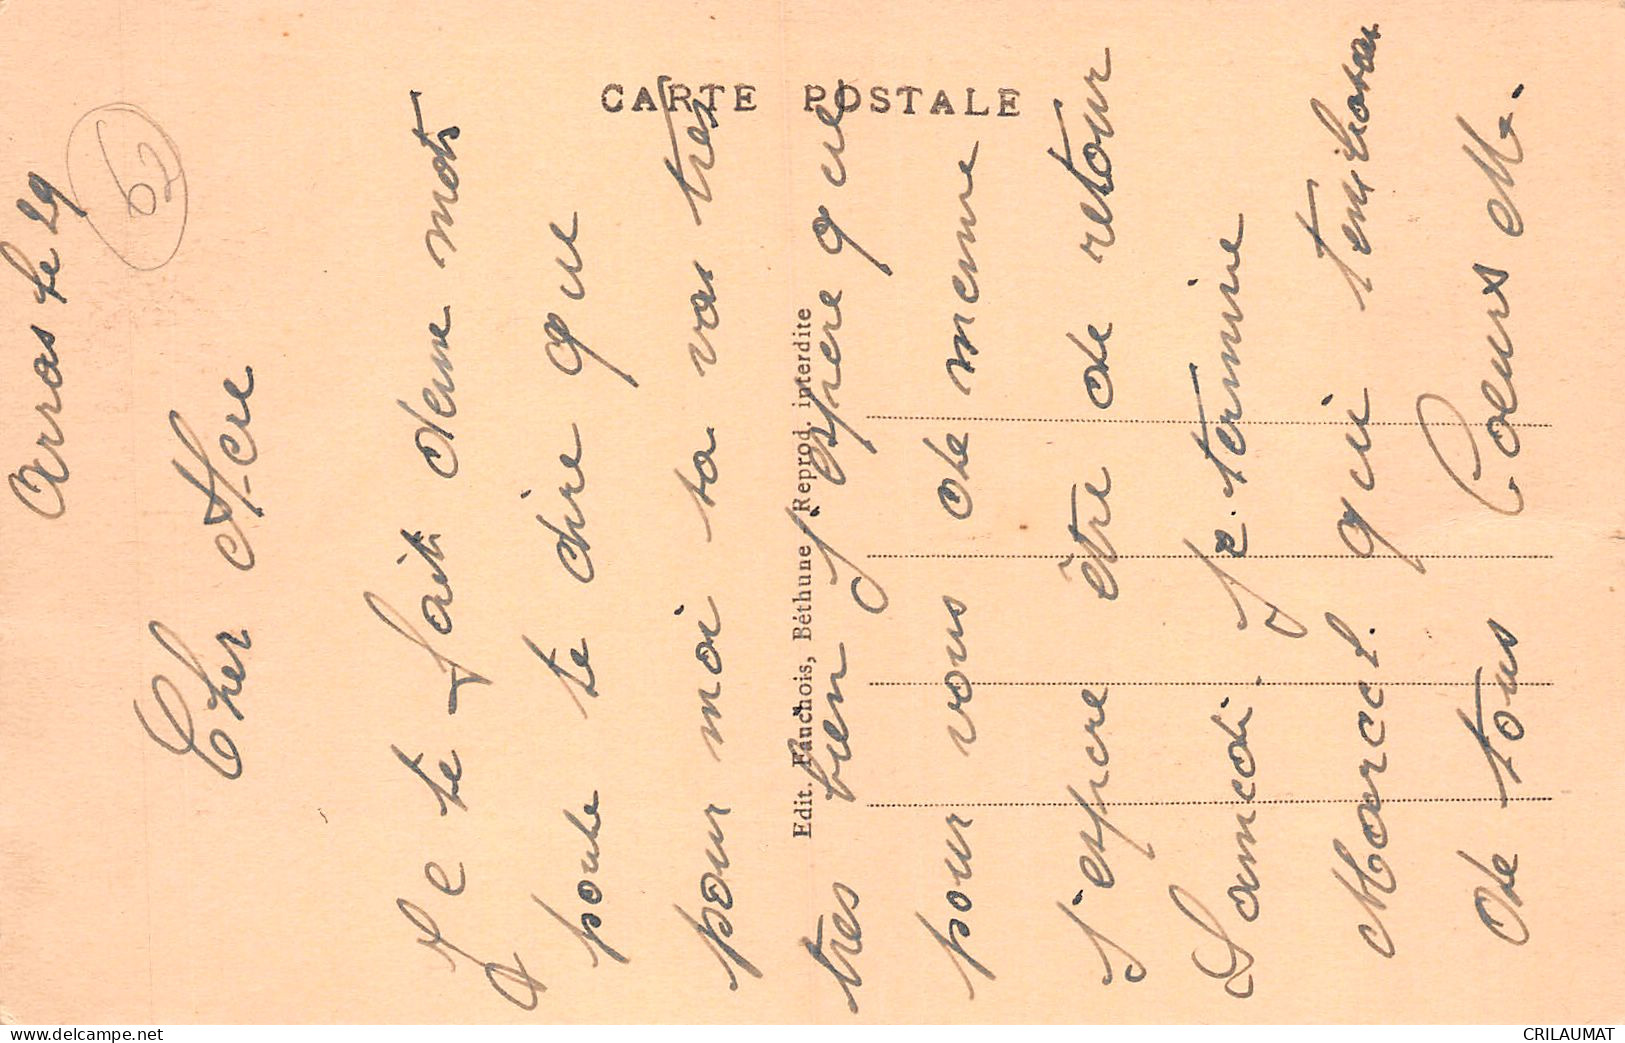 CARTE POSTALE
Arras le 29
62
Cher
Je te fait deux mots
pour te dire que
pour moi sa vas tres
tres bien J'espere que
pour vous de meme
J'espere être de retour
Samedi. Je termine
Marcel. qui
de tous Coeurs M.
Edit. Fauchois, Béthune Reprod. interdite
www.delcampe.net
CRILAUMAT